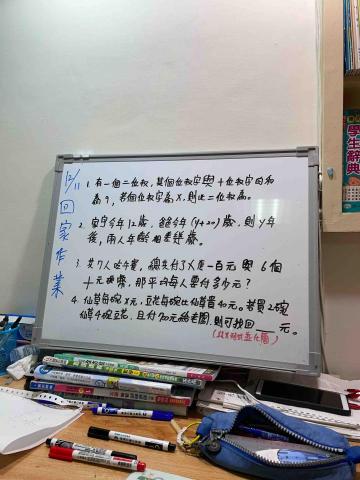 12/11
回家作業
1. 有一個二位數,其個位數字與十位數字的和
為9,若個位數字為X,則此二位數為。
2. 宥宇今年12歲,爸今年(y+20)歲,則y年
後,兩人年齡相差幾歲。
3. 共7人吃午餐,總共付了X張一百元與6個
十元硬幣,那平均每人要付多少元?
4. 仙草每碗X元,豆花每碗比仙草貴40元。若買2碗
仙草4碗豆花,且付
元給老闆,則可找回___元。
學生辭典